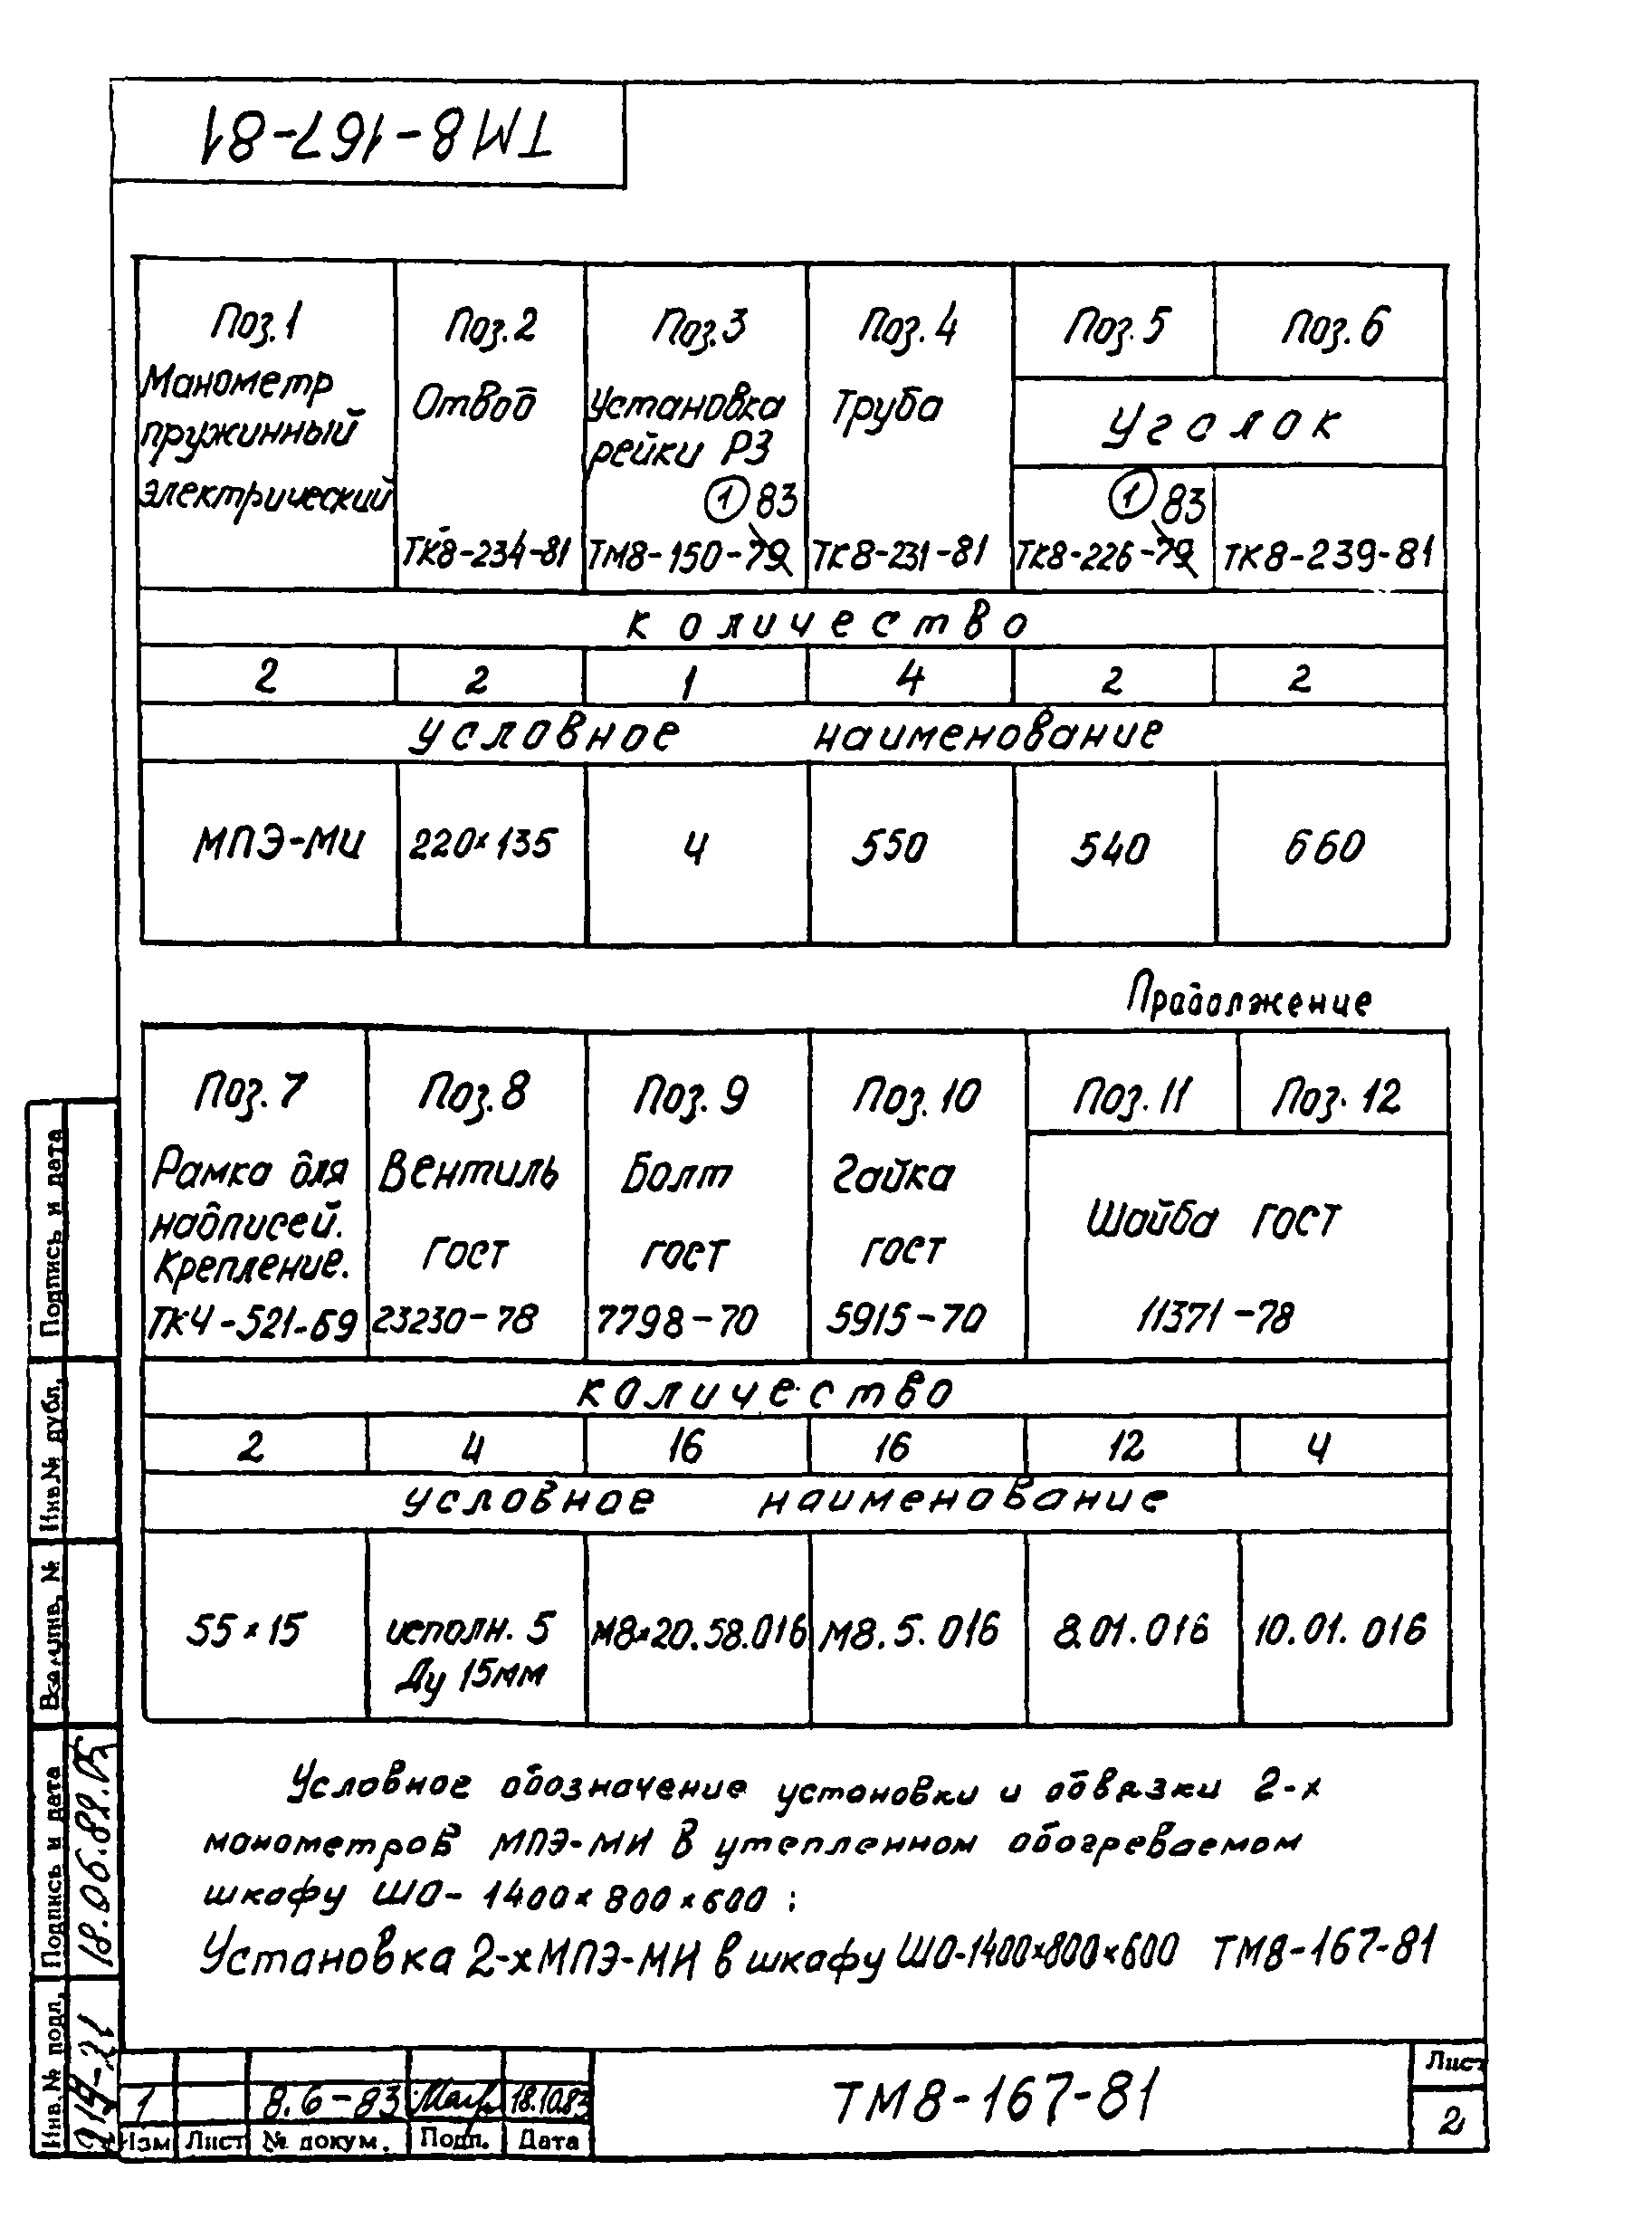 ТМ8-167-81
Поз.1 Поз.2 Поз.3 Поз.4 Поз.5 Поз.6
Манометр пружинный электрический
Отвод
ТК8-234-81
Установка рейки РЗ
① 83
ТМ8-150-79
Труба
ТК8-231-81
Уголок
① 83
ТК8-226-79
ТК8-239-81
количество
2 2 1 4 2 2
условное наименование
МПЭ-МИ 220×135 4 550 540 660
Продолжение
Поз.7 Поз.8 Поз.9 Поз.10 Поз.11 Поз.12
Рамка для
надписей.
Крепление.
ТК4-521-69
Вентиль
гост
23230-78
Болт
гост
7798-70
Гайка
гост
5915-70
Шайба гост
11371-78
количество
2 4 16 16 12 4
условное наименование
55×15
исполн. 5
Ду 15мм
М8×20.58.016 М8.5.016 8.01.016 10.01.016
Условное обозначение установки и обвязки 2-х
манометров МПЭ-МИ в утепленном обогреваемом
шкафу ШО-1400×800×600:
Установка 2-х МПЭ-МИ в шкафу ШО-1400×800×600 ТМ8-167-81
Подпись и дата
Инв.№ дубл.
Взам.инв. №
Подпись и дата
Инв.№ подл.
1 8.6-83 18.10.83
Изм Лист № докум. Подп. Дата
ТМ8-167-81
Лист
2